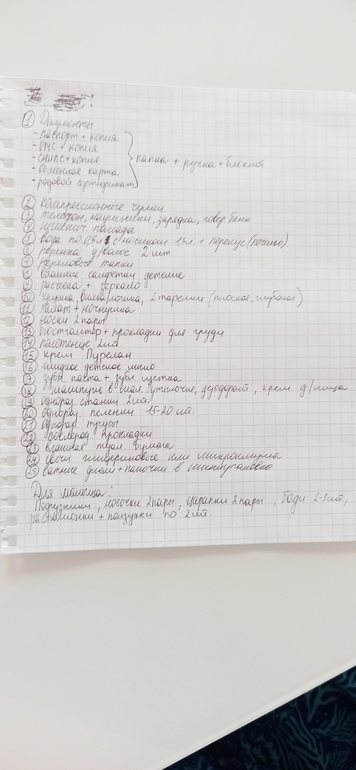 ① Документы
- паспорт + копия
- ОМС + копия
- СНИЛС + копия
- обменная карта
- родовой сертификат
папка + ручка + блокнот
② Компрессионные чулки
③ телефон, наушники, зарядка, повер банк
④ помада
⑤ вода по 0,5 л с носиком 1,5 л. + перекус (печенье)
⑥ резинка д/волос 2 шт.
⑦ резиновые тапки
⑧ влажные салфетки детские
⑨ расческа + зеркало
⑩ кружка, вилка, ложка, 2 тарелки (плоская, глубокая)
⑪ халат + ночнушка
⑫ носки 2 пары
⑬ бюстгальтер + прокладки для груди
⑭ полотенце 2 шт
⑮ крем Пурелан
⑯ жидкое детское мыло
⑰ зубн. паста + зубн. щетка
⑱ шампунь в мал. бутылочке, дезодорант, крем д/лица
⑲ однораз. станки 2 шт.
⑳ однораз. пеленки 15-20 шт.
㉑ однораз. трусы
㉒ прокладки
㉓ влажная туал. бумага
㉔ свечи глицериновые или микроклизма
㉕ ватные диски + палочки в
Для малыша:
Подгузники, носочки 2 пары, царапки 2 пары, боди 2-3 шт,
распашонки + ползунки по 2 шт.